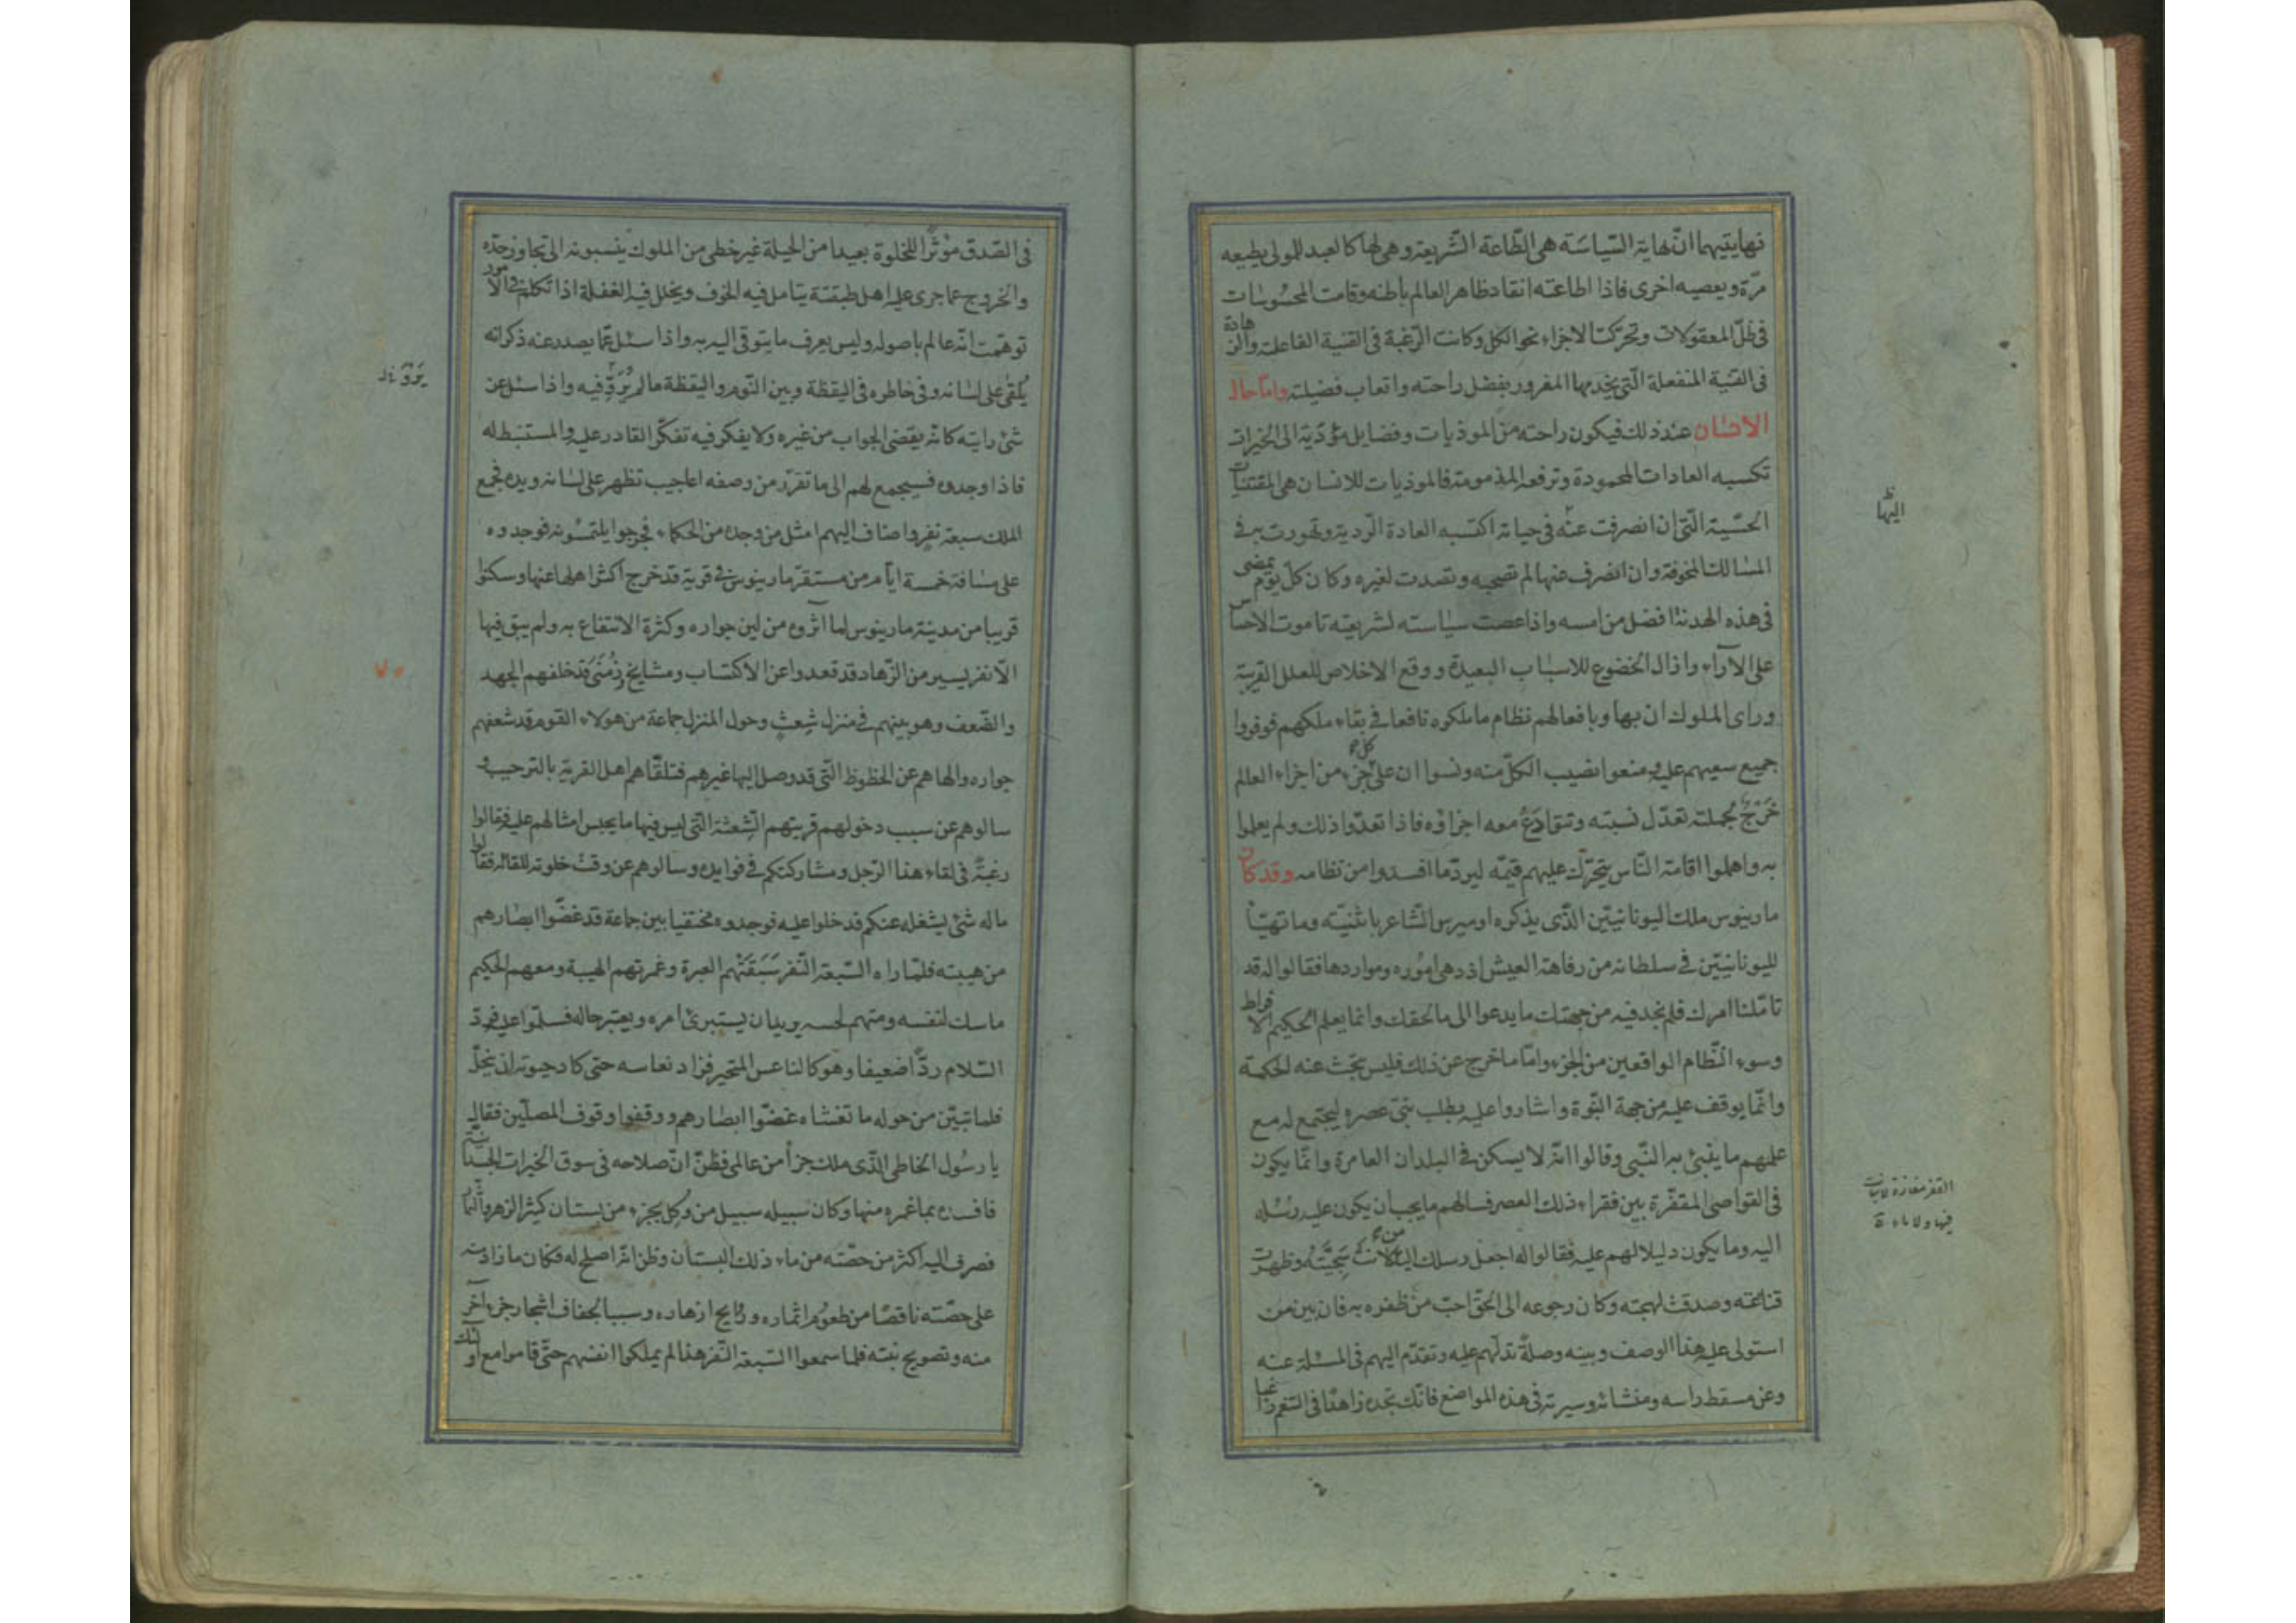 نهايتيهما انّ نهاية السّياسَة هى الطّاعة الشّريعة وهى لها كالعبد للمولى يطيعه
مرّة ويعصيه اخرى فاذا اطاعته انقاد ظاهر العالم باطنه وقامت المحسُوسٰات
فى ظلّ المعقولات وتحرّكت الاجزاء نحو الكل وكانت الرّغبة فى القنية الفاعلة والزهادة
فى القنية المنفعلة الّتى يخدمها المغرور بفضل راحته واتعاب فضيلته وامّا حال
الانسٰان عند ذلك فيكون راحته من الموذيات وفضايل مؤدّية الى الخيرات
تكسبه العادات المحمودة وترفعه المذمومة فالموذيات للانسان هى المقتنيات
الحسّية الّتى ان انصرفت عنه فى حياته اكتسبه العادة الرّدية وتهورت به فى
المسٰالك المخوفة وان انصرف عنها لم تصحبه وتصدت لغيره وكان كلّ يوم يمضى
فى هذه الهدنة افضل من امسه واذا عصت سيٰاسته لشريعته تاموت الاحسٰاس
على الآراء وازال الخضوع للاسبٰاب البعيدة ووقع الاخلاص للعلل القريبة
وراى الملوك ان بها وبافعالهم نظام ما ملكوه نافعا فى بقاء ملكهم فوفروا
جميع سعيهم عليه ومنعوا نصيب الكلّ منه ونسوا ان على كل جزء من اجزاء العالم
خَرْجٌ لجملته تعدّل نسبته وتتقادَعُ معه اجزاؤه فاذا تعدّوا ذلك ولم يعلموا
به واهملوا اقامة النّاس يتحرّك عليهم قيّمه ليردّ ما افسدوا من نظامه وقد كان
مارينوس ملك اليونانيّين الذّى يذكره اوميرس الشّاعر باثنيّته وما تهيّأ
لليونانيّين فى سلطانه من رفاهة العيش اذ دهى امُوره ومواردها فقالوا له قد
تامّلنا امرك فلم نجد فيه من جهتك ما يدعوا الى ما لحقك وانما يعلم الحكيم الافراط
وسوء النّظام الواقعين من الجزء وامّا ما خرج عن ذلك فليس يبحث عنه الحكمة
وانّما يوقف عليه من جهة النّبوة واشاروا عليه بطلب نبىّ عصره ليجتمع له مع
علمهم ما ينبئ به النّبى وقالوا انّه لا يسكن فى البلدان العامرة وانّما يكون
فى القواصى المقفّرة بين فقراء ذلك العصر فسالهم ما يجب ان يكون عليه رسُله
اليه وما يكون دليلا لهم عليه فقالوا له اجعل رسلك اليه من لانت سَجِيَّتُهُ وظهرت
قناعته وصدقت لهجته وكان رجوعه الى الحقّ احبّ من ظفره به فان بين من
استولى عليه هذا الوصف وبينه وصلةً تدلّهم عليه وتقدّم اليهم فى المسئلة عنه
وعن مسقط راسه ومنشائه وسيرته فى هذه المواضع فانّك تجده زاهدًا فى النعم راغبا
اليها
القفر مفازة لا نبات
فيها ولا ماء
فى
فى الصّدق مؤثرًا للخلوة بعيدا من الحيلة غير خطى من الملوك ينسبونه الى تجاوز حدّه
والخروج عما جرى عليه اهل طبقته يتامل فيه الخوف ويخلل فيه الغفلة اذا تكلم فى الامور
توهّمت انّه عالم باصوله وليس يعرف ما يتوقى اليه به واذا سئل عمّا يصدر عنه ذكر انه
يُلقىٰ على لسٰانه وفى خاطره فى اليقظة وبين النّوم واليقظة ما لم يُرَوِّ فيه واذا سئل عن
شئ رايته كانّه يقتضى الجواب من غيره ولا يفكر فيه تفكّر القادر عليه والمستنبط له
فاذا وجدوه فسيجمع لهم الى ما تقرّر من وصفه اعاجيب تظهر على لسٰانه ويده فجمع
الملك سبعة نفر واضاف اليهم امثل من وجده من الحكماء فخرجوا يلتمسُونه فوجدوه
على مسٰافة خمسة ايّام من مستقرّ مارينوس فى قرية قد خرج اكثر اهلها عنها وسكنوا
قريبا من مدينة مارينوس لما آثروه من لين جواره وكثرة الانتفاع به ولم يبق فيها
الّا نفر يسير من الزّهاد قد قعدوا عن الاكتساب ومشايخ زَمْنَى قد خلفهم الجهد
والضّعف وهو بينهم فى منزل شعِثٍ وحول المنزل جماعة من هولاء القوم قد شعفهم
جواره والهاهم عن الحظوظ الّتى قد وصل اليها غيرهم فتلقّاهم اهل القرية بالترحيب و
سالوهم عن سبب دخولهم قريتهم الشعثة الّتى ليس فيها ما يحبس امثالهم عليه فقالوا
رغبةً فى لقاء هذا الرّجل ومشاركتكم فى فوايده وسالوهم عن وقت خلوته للقائه فقالوا
ماله شئ يشغله عنكم قد خلوا عليه فوجدوه مختفيا بين جماعة قد غضّوا ابصٰارهم
من هيبته فلمّا راه السّبعة النّفر سَبَقَتْهُم العبرة وغمرتهم الهيبة ومعهم الحكيم
ماسك لنفسه ومتهم لحسه يريد ان يستبرئ امره ويعتبر حاله فسلّموا عليه فردّ
السّلام ردًّا ضعيفا وهو كالناعس المتحير فزاد نعاسه حتى كاد حبوته ان ينحلّ
فلما تبيّن من حوله ما تغشاه غضّوا ابصٰارهم ووقفوا وقوف المصلّين فقال
يا رسُول الخاطى الذّى ملك جزأ من عالمى فظنّ انّ صلاحه فى سوق الخيرات الجسديّة اليه
فافسده بما غمره منها وكان سبيله سبيل من وُكل بجزء من بستان كثير الزهر والثّمار
فصرف اليه اكثر من حصّته من ماء ذلك البستان وظن انّه اصلح له فكان ما زاد منه
على حصّته ناقصًا من طعُوم اثماره وروايح ازهاره وسببا لجفاف اشجار جزء آخر
منه وتصويح نبته فلما سمعوا السّبعة النّفر هذا لم يملكوا انفسهم حتّى قاموا مع اولئك
يَرَوَّ
٧٠